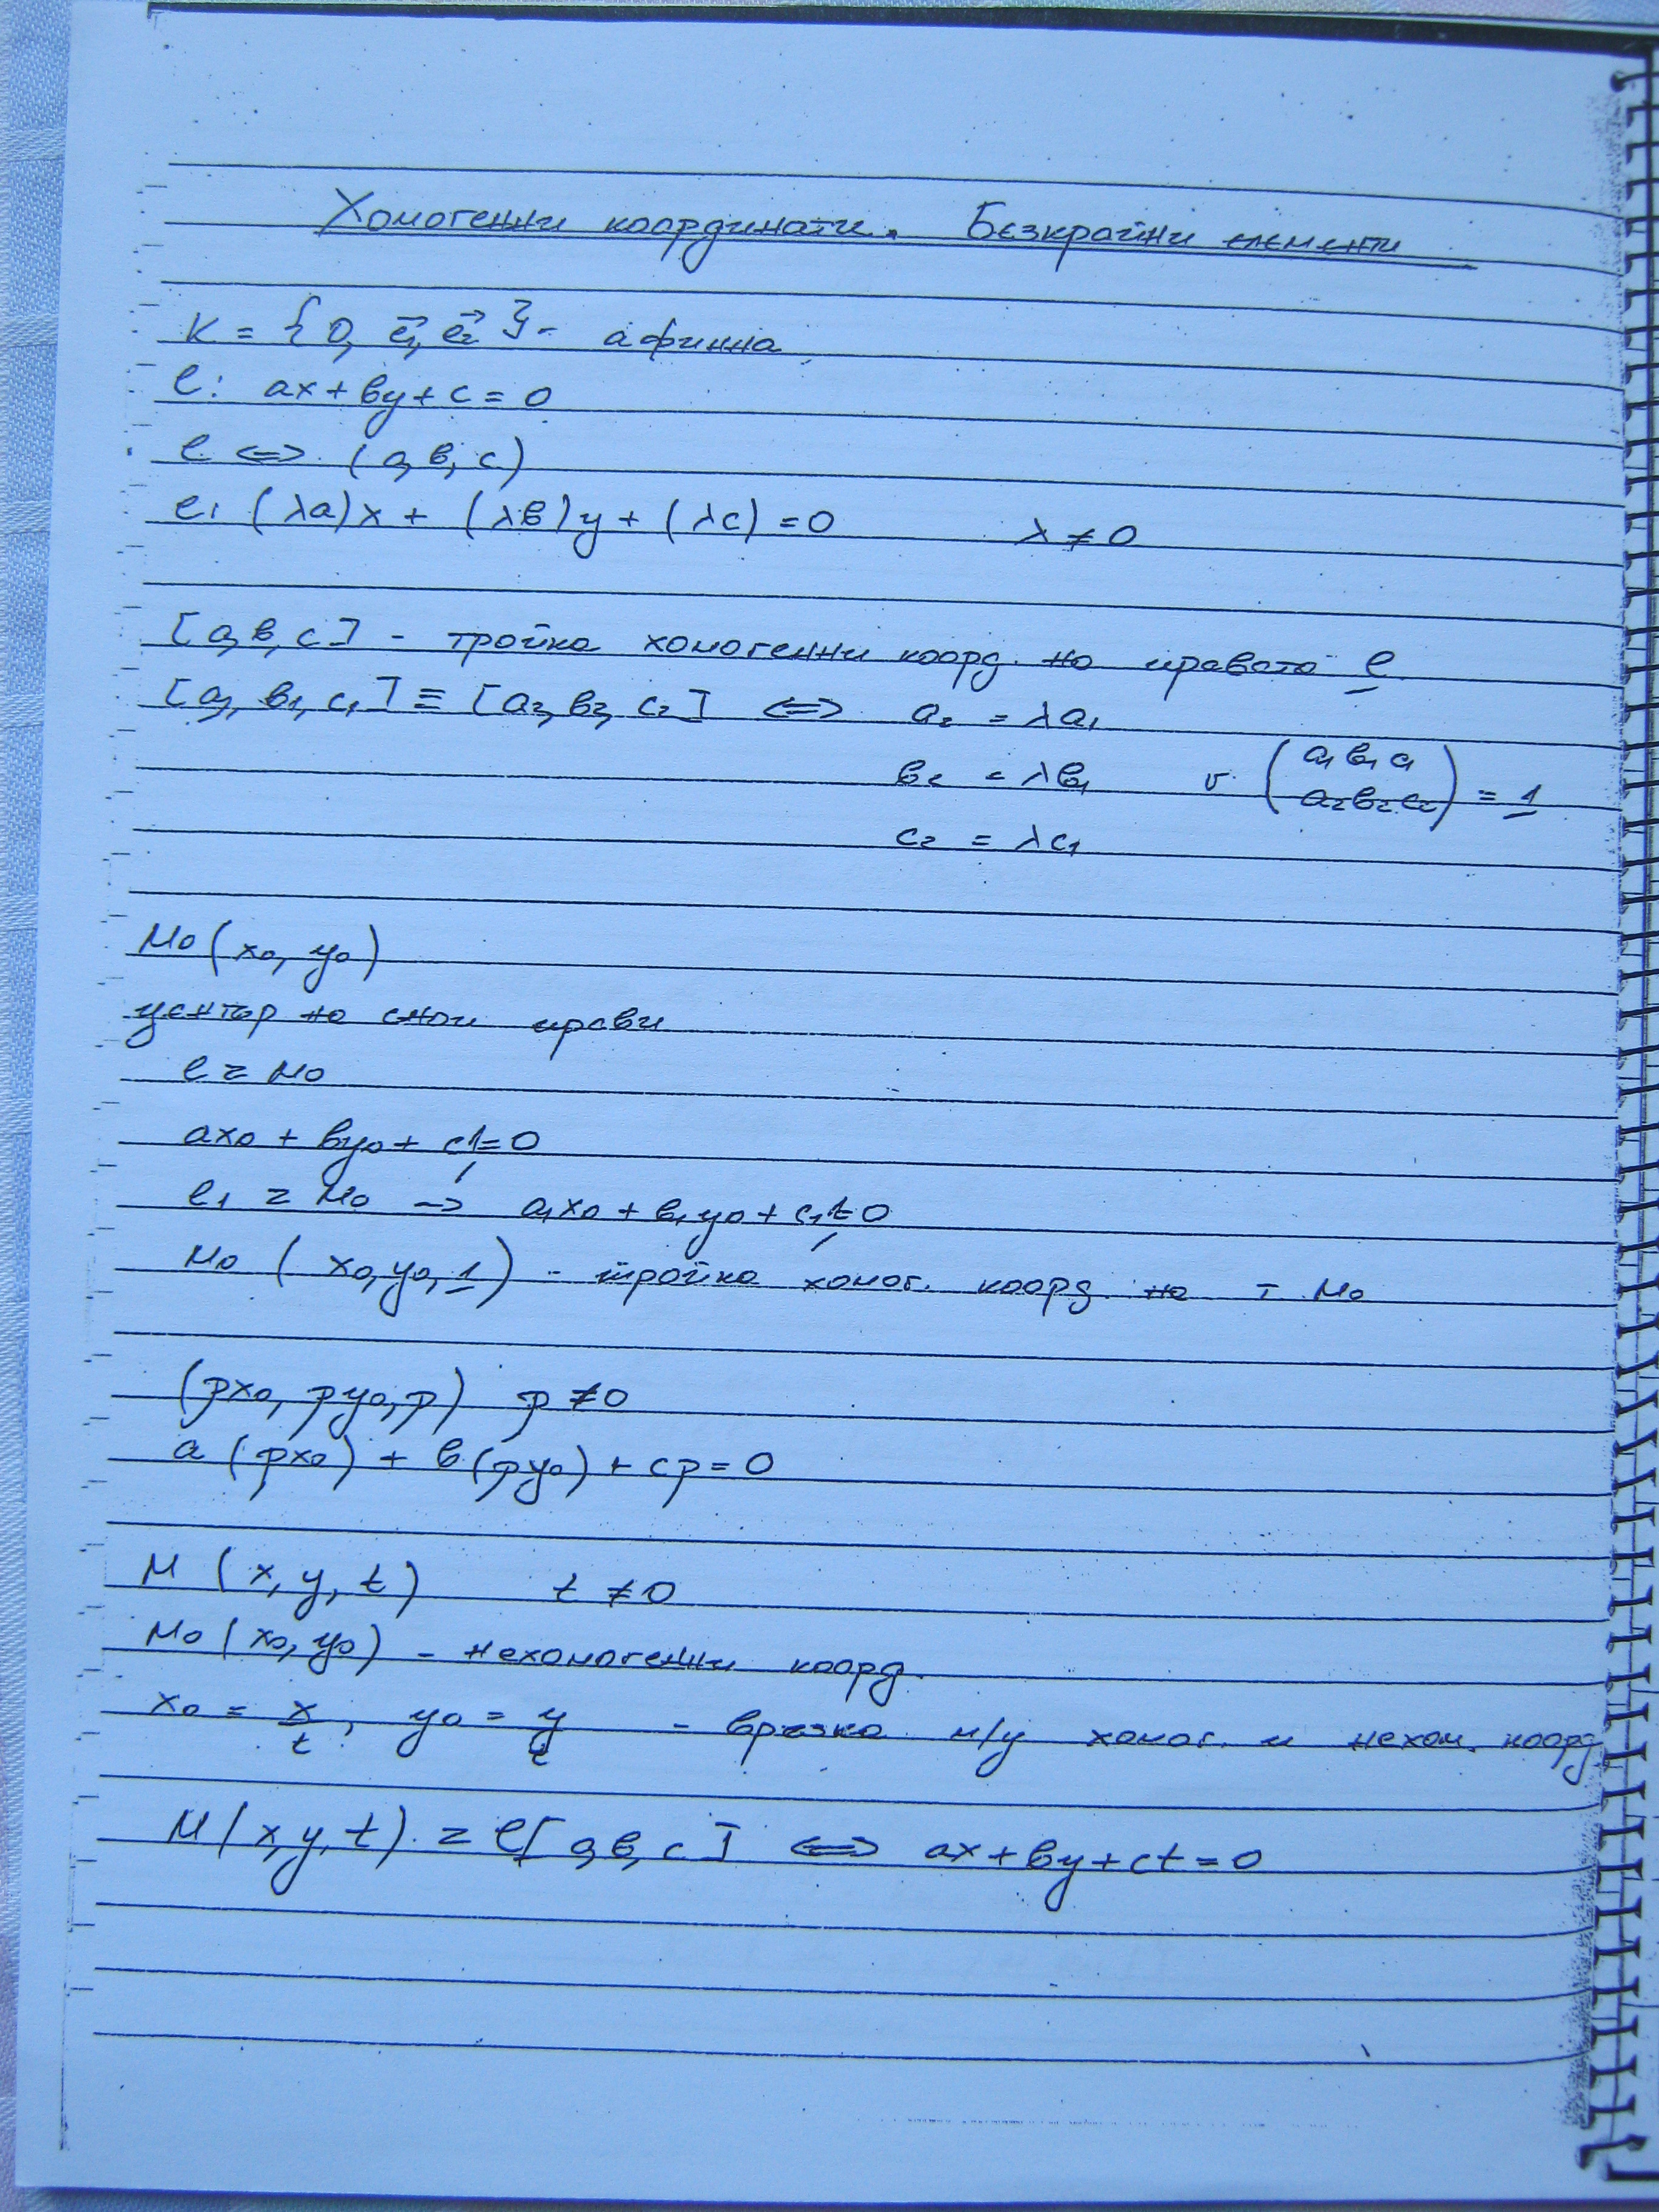 Хомогенни координати. Безкрайни елементи
K = {O, e₁→, e₂→} - афинна
l: ax + by + c = 0
l <=> (a, b, c)
l: (λa)x + (λb)y + (λc) = 0 λ ≠ 0
[a, b, c] - тройка хомогенни коорд. на правата l
[a₁, b₁, c₁] ≡ [a₂, b₂, c₂] <=> a₂ = λa₁
b₂ = λb₁ r (a₁ b₁ c₁
a₂ b₂ c₂) = 1
c₂ = λc₁
M₀(x₀, y₀)
център на сноп прави
l z M₀
ax₀ + by₀ + c1 = 0
l₁ z M₀ -> a₁x₀ + b₁y₀ + c₁1 = 0
M₀ (x₀, y₀, 1) - тройка хомог. коорд. на т M₀
(ρx₀, ρy₀, ρ) ρ ≠ 0
a(ρx₀) + b(ρy₀) + cρ = 0
M (x, y, t) t ≠ 0
M₀(x₀, y₀) - нехомогенни коорд.
x₀ = x/t, y₀ = y/t - връзка м/у хомог. и нехом. коорд.
M(x, y, t) z l[a, b, c] <=> ax + by + ct = 0